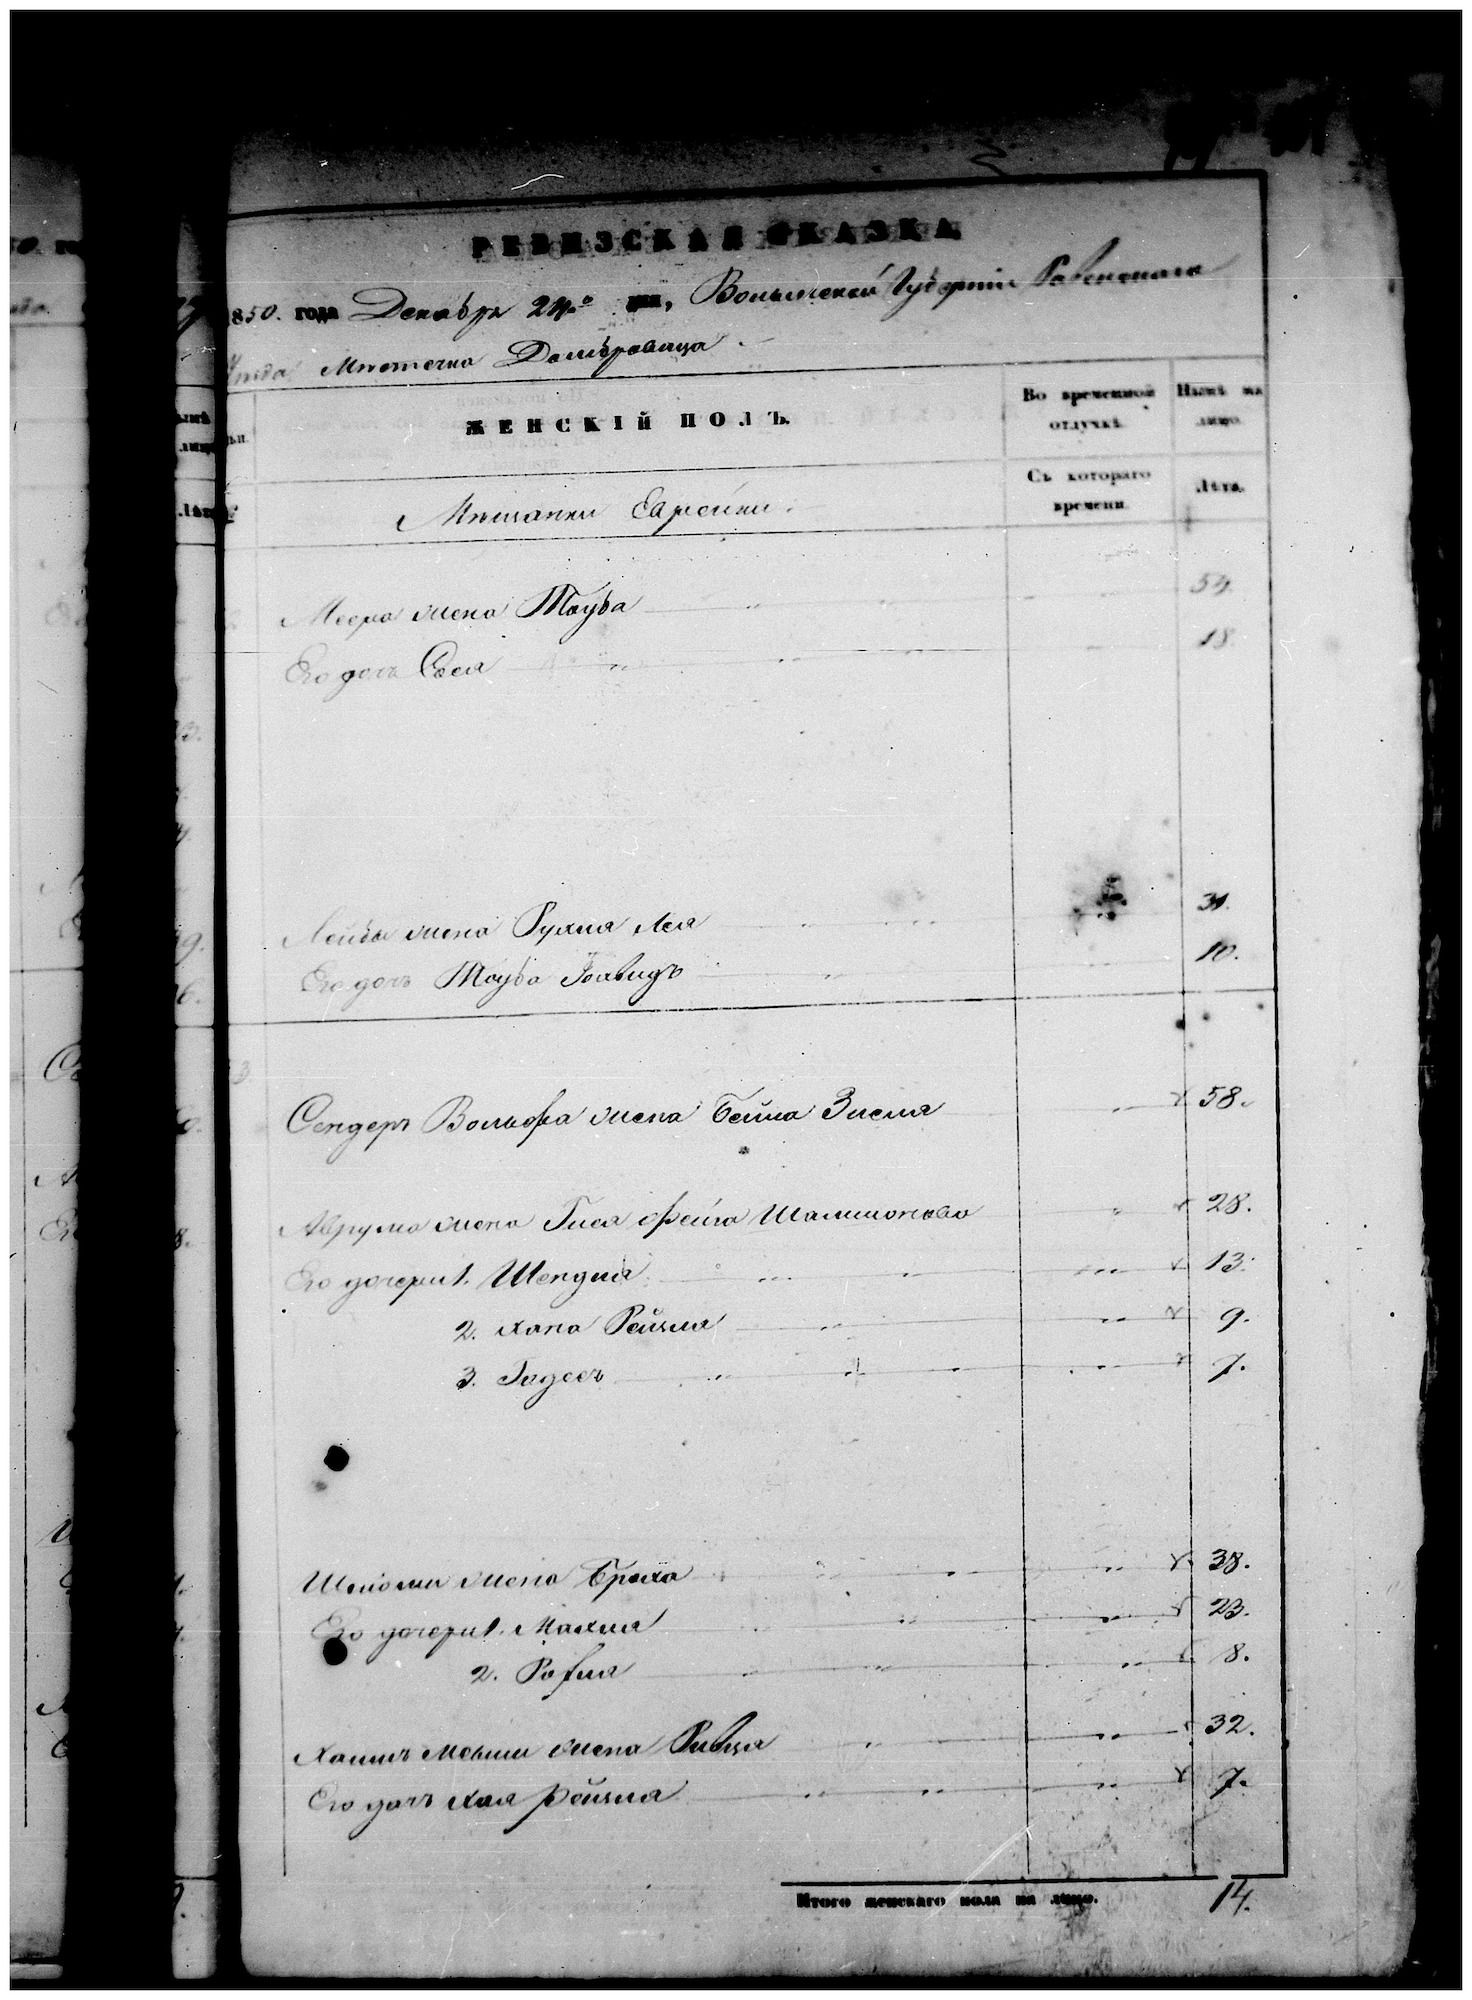 РЕВИЗСКАЯ СКАЗКА
850. года Декабря 24.º дня, Волынской Губернии Ровенского
Уезда Местечка Домбровица
ЖЕНСКІЙ ПОЛЪ.
Во временной отлучкѣ.
Нынѣ на лицо.
Мещанки Еврейки.
Съ котораго времени.
Лѣта.
Меера жена Тауба 54
Его дочь Сося 18.
Лейбы жена Рухля Лея 31.
Его дочь Тауба 10.
Сендеръ Вольфа жена Бейла Зисля 58.
Аврума жена Гися Фейга 28.
Его дочери 1. Шендля 13.
2. Хана Рейзля 9.
3. Годесъ 7.
Шлиомы жена Браха 38.
Его дочери 1. Малия 23.
2. 8.
жена Ривка 32.
Его дочь Хая Рейзля 7.
Итого женскаго пола на лицо. 14.